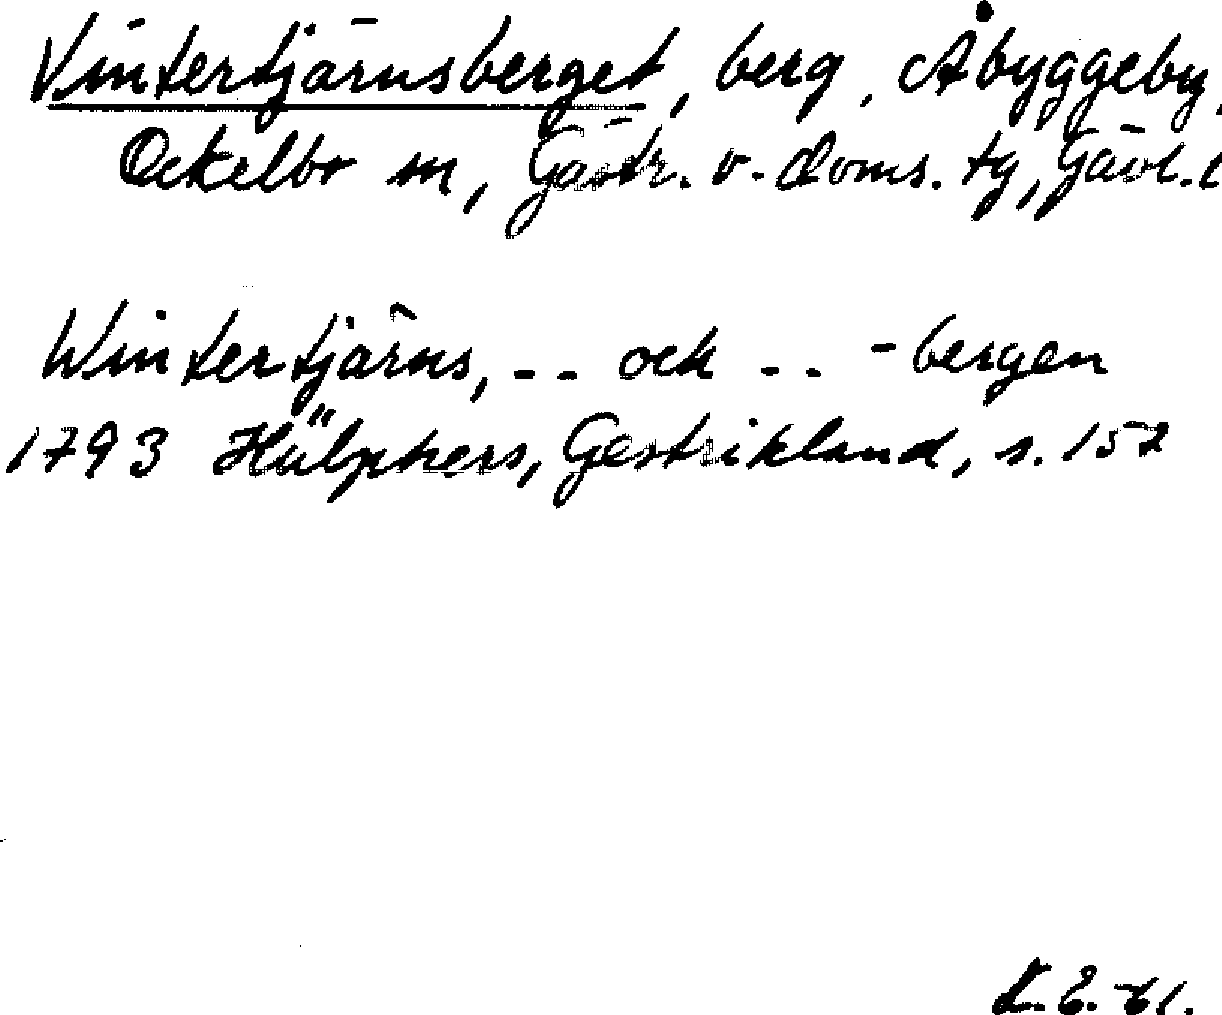 Vintertjärnsberget, berg, Åbyggeby,
Ockelbo sn, Gästr. v. doms. tg, Gävl. l
Wintertjärns, - - och - - -bergen
1793 Hülphers, Gestrikland, s. 157
L.E. -61.